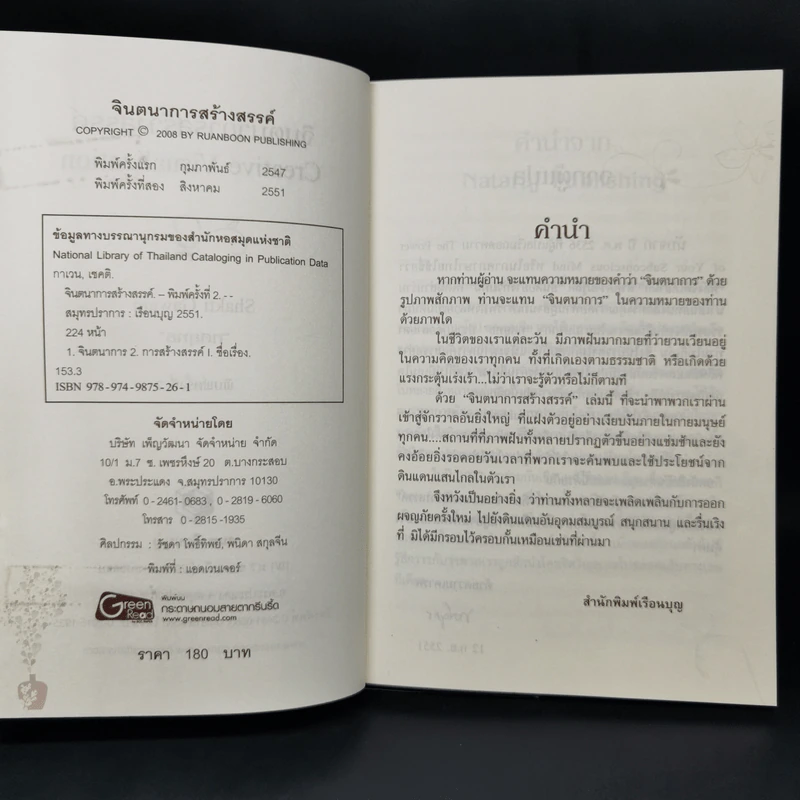 จินตนาการสร้างสรรค์
COPYRIGHT © 2008 BY RUANBOON PUBLISHING
พิมพ์ครั้งแรก กุมภาพันธ์ 2547
พิมพ์ครั้งที่สอง สิงหาคม 2551
ข้อมูลทางบรรณานุกรมของสำนักหอสมุดแห่งชาติ
National Library of Thailand Cataloging in Publication Data
กาเวน, เชคติ.
จินตนาการสร้างสรรค์. – พิมพ์ครั้งที่ 2. --
สมุทรปราการ : เรือนบุญ 2551.
224 หน้า
1. จินตนาการ 2. การสร้างสรรค์ I. ชื่อเรื่อง.
153.3
ISBN 978-974-9875-26-1
จัดจำหน่ายโดย
บริษัท เพ็ญวัฒนา จัดจำหน่าย จำกัด
10/1 ม.7 ซ. เพชรหึงษ์ 20 ต.บางกระสอบ
อ.พระประแดง จ.สมุทรปราการ 10130
โทรศัพท์ 0-2461-0683, 0-2819-6060
โทรสาร 0-2815-1935
ศิลปกรรม : รัชดา โพธิ์ทิพย์, พนิดา สกุลจีน
พิมพ์ที่ : แอดเวนเจอร์
Green Read
พิมพ์บน
กระดาษถนอมสายตากรีนรี้ด
www.greenread.com
ราคา 180 บาท
คำนำ
หากท่านผู้อ่าน จะแทนความหมายของคำว่า “จินตนาการ” ด้วย
รูปภาพสักภาพ ท่านจะแทน “จินตนาการ” ในความหมายของท่าน
ด้วยภาพใด
ในชีวิตของเราแต่ละวัน มีภาพฝันมากมายที่ว่ายวนเวียนอยู่
ในความคิดของเราทุกคน ทั้งที่เกิดเองตามธรรมชาติ หรือเกิดด้วย
แรงกระตุ้นเร่งเร้า...ไม่ว่าเราจะรู้ตัวหรือไม่ก็ตามที
ด้วย “จินตนาการสร้างสรรค์” เล่มนี้ ที่จะนำพาพวกเราผ่าน
เข้าสู่จักรวาลอันยิ่งใหญ่ ที่แฝงตัวอยู่อย่างเงียบงันภายในกายมนุษย์
ทุกคน....สถานที่ที่ภาพฝันทั้งหลายปรากฏตัวขึ้นอย่างแช่มช้าและยัง
คงอ้อยอิ่งรอคอยวันเวลาที่พวกเราจะค้นพบและใช้ประโยชน์จาก
ดินแดนแสนไกลในตัวเรา
จึงหวังเป็นอย่างยิ่ง ว่าท่านทั้งหลายจะเพลิดเพลินกับการออก
ผจญภัยครั้งใหม่ ไปยังดินแดนอันอุดมสมบูรณ์ สนุกสนาน และรื่นเริง
ที่ มิได้มีกรอบไว้ครอบกั้นเหมือนเช่นที่ผ่านมา
สำนักพิมพ์เรือนบุญ